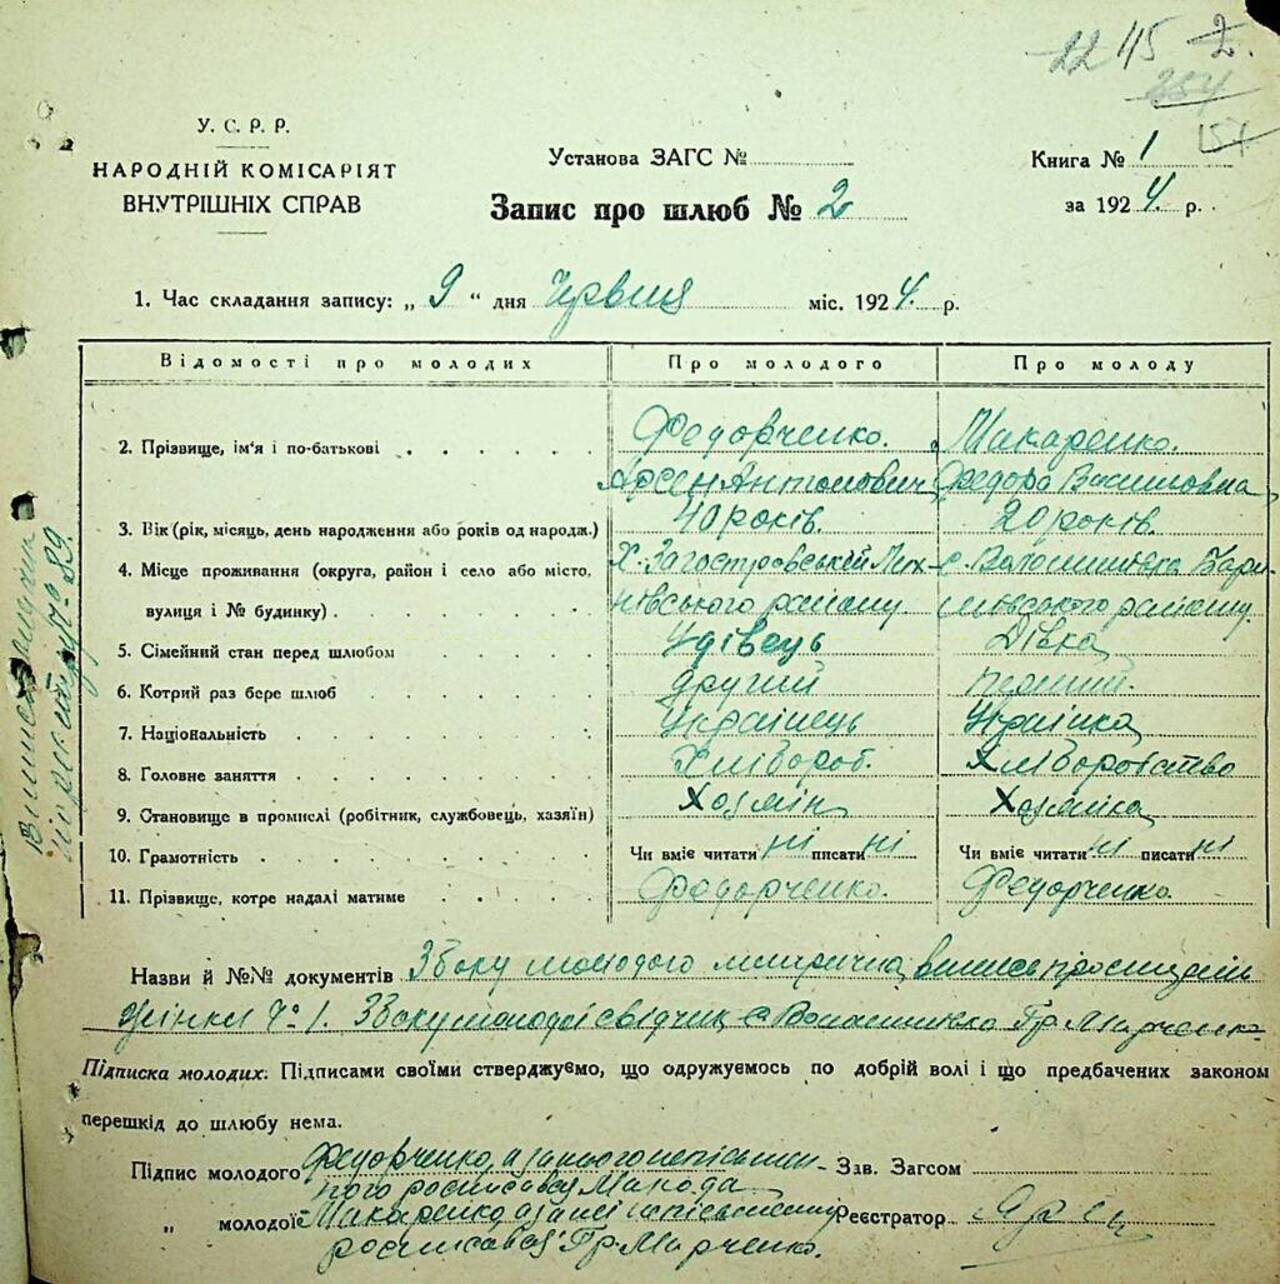 22 45 2.
354
У. С. Р. Р.
НАРОДНІЙ КОМІСАРІЯТ
ВНУТРІШНІХ СПРАВ
Установа ЗАГС №
Запис про шлюб № 2
Книга № 1
за 1924 р.
1. Час складання запису: „ 9 “ дня Червця міс. 1924. р.
Відомості про молодих Про молодого Про молоду
2. Прізвище, ім'я і по-батькові Федорченко. Макаренко.
Арсен Антонович Федора Василовна
3. Вік (рік, місяць, день народження або років од народж.) 40 років. 20 років.
4. Місце проживання (округа, район і село або місто, Х. Загостровський Мих- с. Волошинівка Бари-
вулиця і № будинку) нівського району. шовського району.
5. Сімейний стан перед шлюбом Удівець Дівка
6. Котрий раз бере шлюб другий перший.
7. Національність Українець Українка
8. Головне заняття Хлібороб. Хліборобство
9. Становище в промислі (робітник, службовець, хазяїн) Хозяін Хозяіка
10. Грамотність Чи вміє читати ні писати ні Чи вміє читати ні писати ні
11. Прізвище, котре надалі матиме Федорченко. Федорченко.
Назви й №№ документів З боку молодого метрична випись про
жінки № 1. З боку молодої свідчив с Волошинівка Гр. Марченко
Підписка молодих: Підписами своїми стверджуємо, що одружуємось по добрій волі і що предбачених законом
перешкід до шлюбу нема.
Підпис молодого Федорченко, а за нього неписьмен- Зав. Загсом
ного росписався
„ молодої Макаренко, а за неї неписьменну Реєстратор
росписався Гр. Марченко.